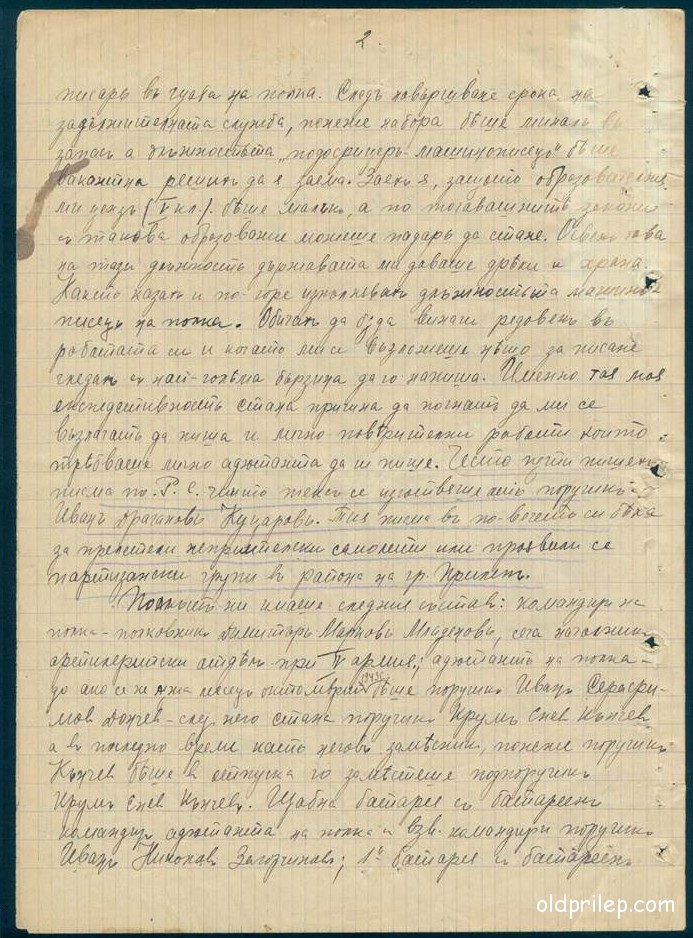 2.
писарь въ щаба на полка. Следъ навършване срока на
задължителната служба, понеже набора бѣше миналъ въ
запасъ а длъжностьта „подофицеръ-машинописецъ" бѣше
вакантна решихъ да я заема. Заехъ я, защото образователния
ми цензъ (V кл.) бѣше малъкъ, а по тогавашнитѣ закони
съ такова образование можеше падарь да стане. Освенъ това
на тази длъжность държавата ми даваше дрѣхи и храна.
Както казахъ и по-горе изпълнявахъ длъжностьта машино-
писецъ на полка. Обичахъ да бѫда винаги редовенъ въ
работата си и когато ми се възложеше нѣщо за писане
гледахъ съ най-голѣма бързина да го напиша. Именно тая моя
експедитивность стана причина да почнатъ да ми се
възлагатъ да пиша и лично-повѣрителни работи които
трѣбваше лично адютанта да ги пише. Често пѫти пишехъ
писма по Р. С. чиито текстъ се изготвяше отъ поручикъ
Иванъ Драгановъ Куцаровъ. Тия писма въ по-вечето си бѣха
за прелители неприятелски самолети или проявили се
партизански групи въ района на гр. Прилепъ.
Полкътъ ни имаше следния съставъ: командиръ на
полка - полковникъ Димитъръ Марковъ Младеновъ, сега началникъ
артилерийски отдѣлъ при V армия; адютантъ на полка -
до ако се не лъжа месецъ октомврий 1943 г. бѣше поручикъ Иванъ Серафи-
мов Дончев - след него стана поручикъ Крумъ Енев Кънчевъ
а въ последно време като неговъ замѣсникъ, понеже поручикъ
Кънчев бѣше в отпуска го замѣстеше подпоручикъ
Крумъ Енев Кънчевъ. Щабна батарея съ батареенъ
командиръ адютанта на полка и взв. командири поручикъ
Иванъ Николовъ Загорчиновъ; 1ᵃ батарея съ батареенъ
oldprilep.com